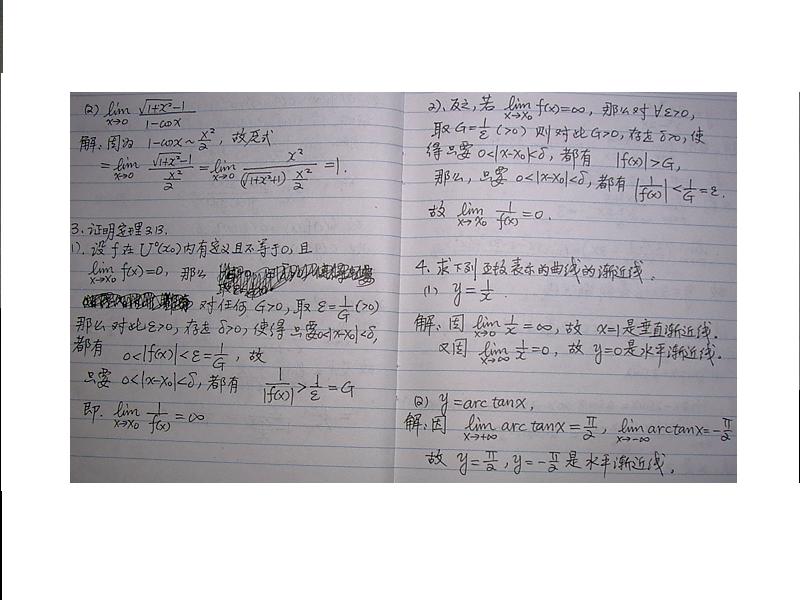 (2) lim x→0 (√(1+x²)-1)/(1-cosx)
解:因为 1-cosx~x²/2, 故原式
=lim x→0 (√(1+x²)-1)/(x²/2)=lim x→0 x²/((√(1+x²)+1)x²/2)=1.
3.证明定理3.13.
1).设f在U°(x₀)内有定义且不等于0,且
lim x→x₀ f(x)=0, 那么
对任何G>0,取ε=1/G(>0)
那么对此ε>0,存在δ>0,使得只要0<|x-x₀|<δ,
都有 0<|f(x)|<ε=1/G, 故
只要0<|x-x₀|<δ,都有 1/|f(x)|>1/ε=G
即. lim x→x₀ 1/f(x)=∞
2).反之,若 lim x→x₀ f(x)=∞, 那么对∀ε>0,
取G=1/ε(>0)则对此G>0,存在δ>0,使
得只要0<|x-x₀|<δ,都有 |f(x)|>G,
那么,只要0<|x-x₀|<δ,都有|1/f(x)|<1/G=ε.
故 lim x→x₀ 1/f(x)=0.
4.求下列函数表示的曲线的渐近线.
(1) y=1/x.
解:因 lim x→0 1/x=∞, 故 x=1是垂直渐近线.
又因 lim x→∞ 1/x=0, 故 y=0是水平渐近线.
(2) y=arctanx,
解:因 lim x→+∞ arctanx=π/2, lim x→-∞ arctanx=-π/2
故 y=π/2,y=-π/2是水平渐近线.